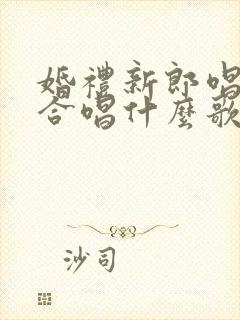 婚禮新郎唱
合唱什麼歌
沙司